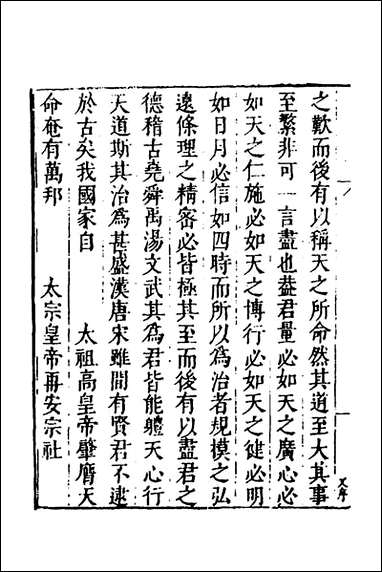 之歎而後有以稱天之所命然其道至大其事
至繁非可一言盡也葢君量必如天之廣心必
如天之仁施必如天之博行必如天之健必明
如日月必信如四時而所以為治者規模之弘
遠條理之精密必皆極其至而後有以盡君之
德稽古堯舜禹湯文武其為君皆能軆天心行
天道斯其治為甚盛漢唐宋雖間有賢君不逮
於古矣我國家自　　太祖高皇帝肇膺天
命奄有萬邦　　太宗皇帝再安宗社